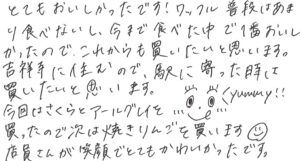 とてもおいしかったです！ワッフル普段はあま
り食べないし、今まで食べた中で1番おいし
かったので、これからも買いたいと思います。
吉祥寺に住むので、駅に寄った時は
買いたいと思います。
yummy!!
今回はさくらとアールグレイを
買ったので次は焼きりんごを買います
店員さんが笑顔でとてもかわいかったです。